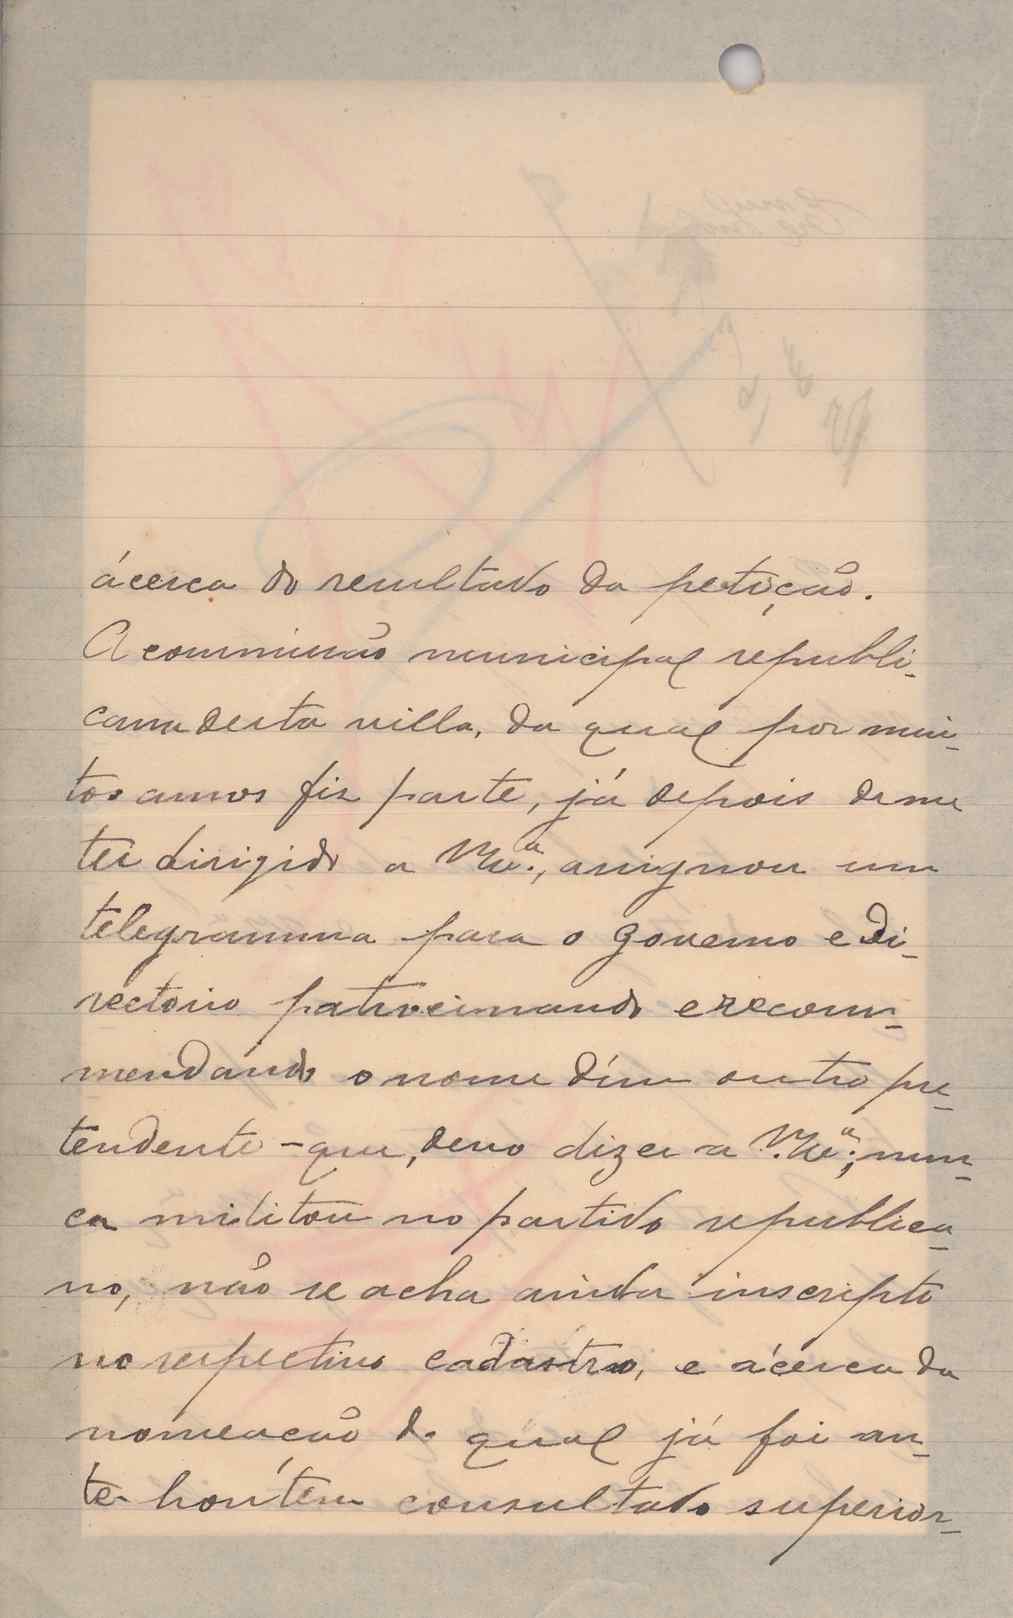 ácerca do resultado da petição.
A commissão municipal republi-
cana desta villa, da qual por mui-
tos annos fiz parte, já depois de me
ter dirigido a V. Ex.ª, assignou um
telegramma para o Governo e Di-
rectorio patrocinando e recom-
mendando o nome d'um outro pre-
tendente - que, devo dizer a V. Ex.ª, nun-
ca militou no partido republica-
no, não se acha ainda inscripto
no respectivo cadastro, e ácerca da
nomeação do qual já foi an-
te-hontem consultado superior-